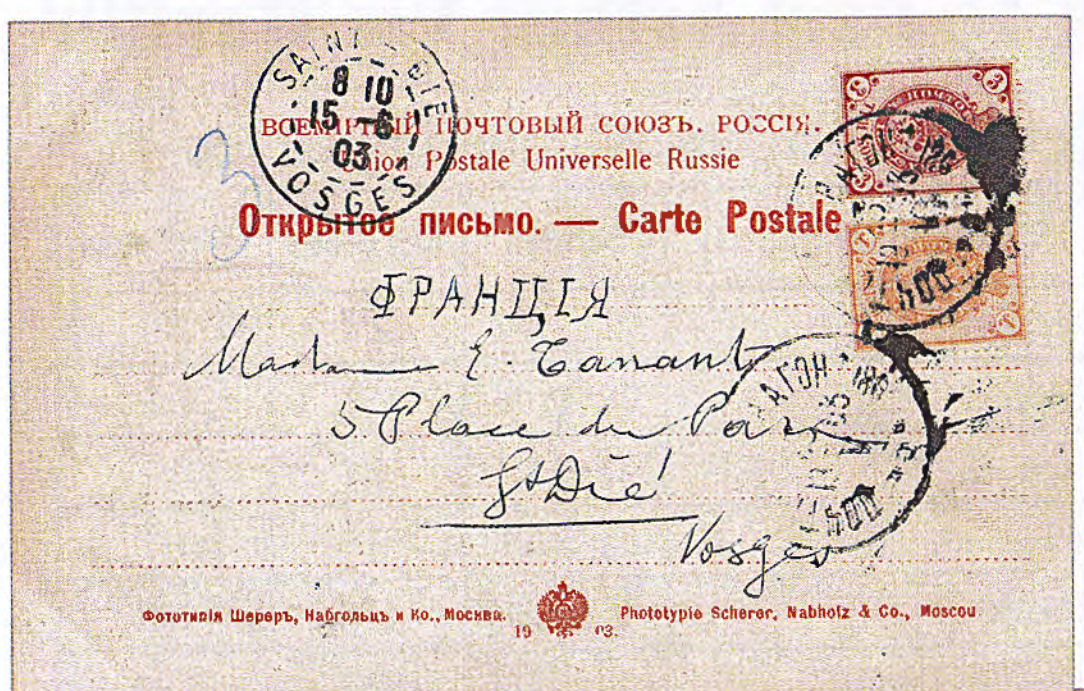 SAINT-DIÉ
8 10
15 -6
03
VOSGES
3
ВСЕМІРНЫЙ ПОЧТОВЫЙ СОЮЗЪ. РОССІЯ.
Union Postale Universelle Russie
Открытое письмо. — Carte Postale
3 3
3
1
1
ВАГОНЪ
ФРАНЦІЯ
Madame E.
5 Place du Parc
St Dié
Vosges
ВАГОНЪ
Фототипія Шереръ, Набгольцъ и Ко., Москва.
Phototypie Scherer, Nabholz & Co., Moscou.
19 03.